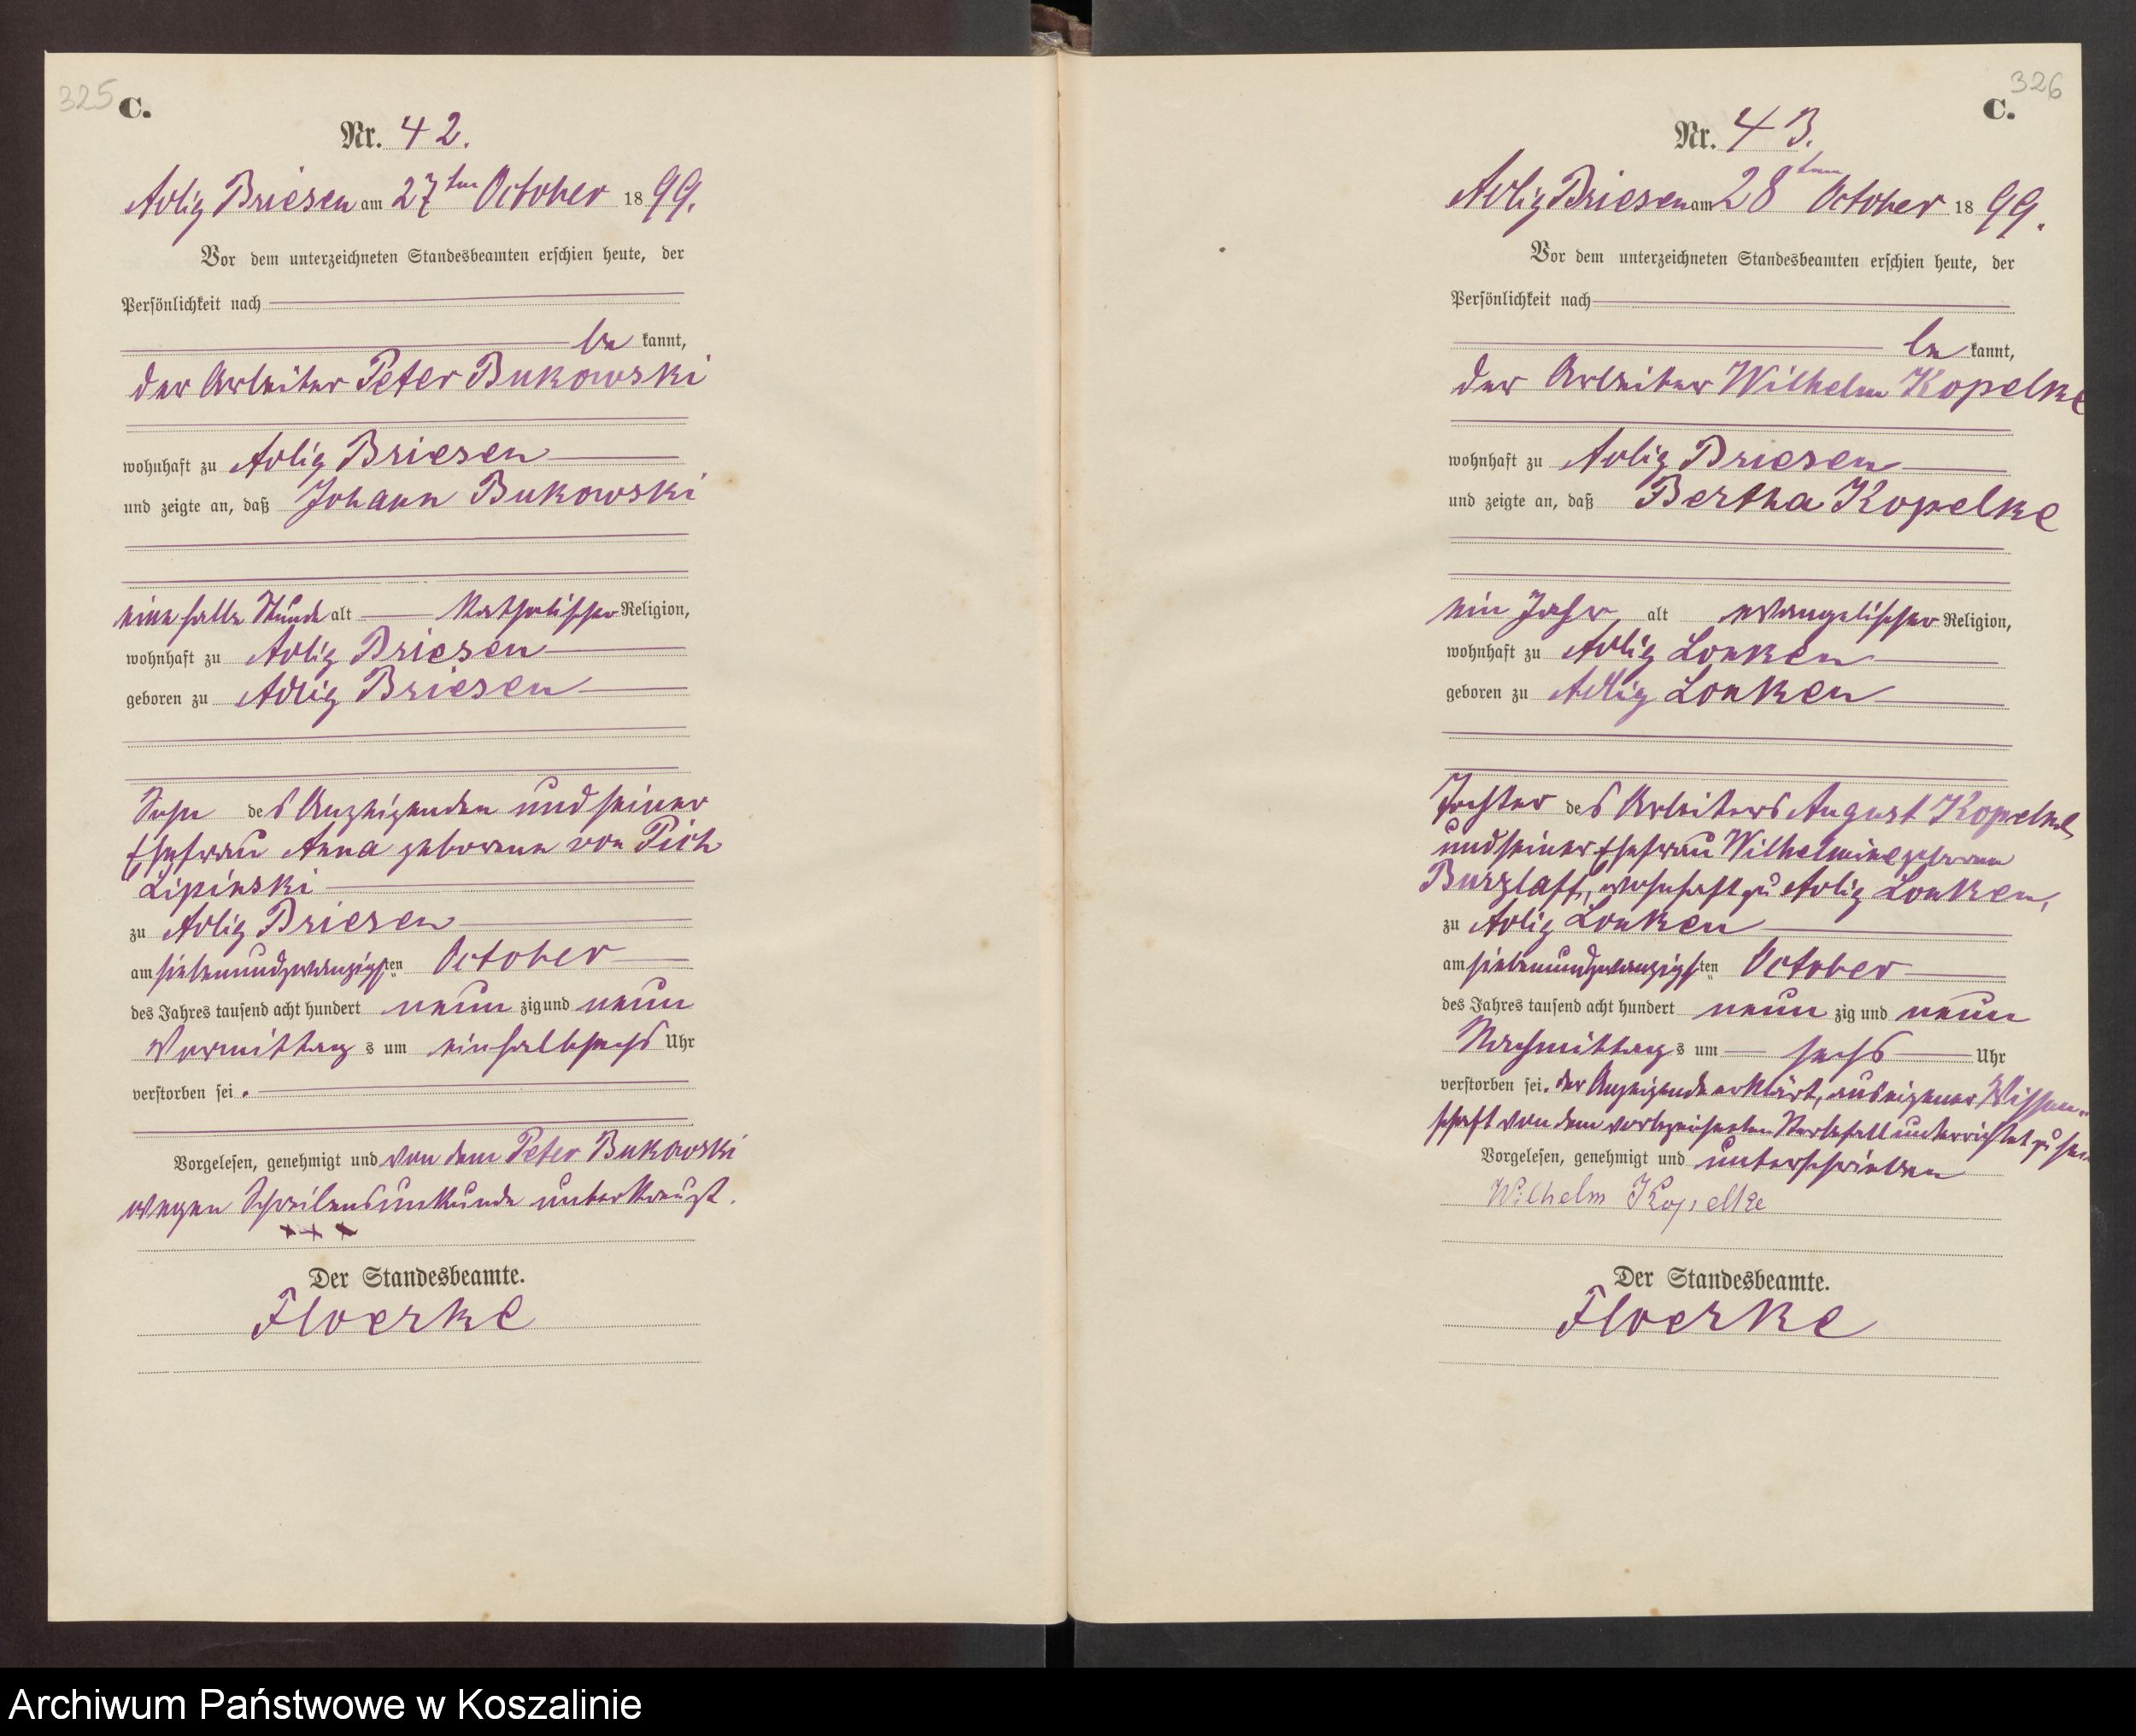 325
C.
Nr. 42.
Adlig Briesen am 27ten October 1899.
Vor dem unterzeichneten Standesbeamten erschien heute, der
Persönlichkeit nach
be kannt,
der Arbeiter Peter Bukowski
wohnhaft zu Adlig Briesen
und zeigte an, daß Johann Bukowski
eine halbe Stunde alt katholischer Religion,
wohnhaft zu Adlig Briesen
geboren zu Adlig Briesen
Sohn des Anzeigenden und seiner
Ehefrau Anna geborene von Pich
Lipinski
zu Adlig Briesen
am siebenundzwanzigsten October
des Jahres tausend acht hundert neun zig und neun
Vormittag s um einhalbsechs Uhr
verstorben sei.
Vorgelesen, genehmigt und von dem Peter Bukowski
wegen Schreibensunkunde unterkreuzt.
+++
Der Standesbeamte.
Floerke
326
C.
Nr. 43.
Adlig Briesen am 28ten October 1899.
Vor dem unterzeichneten Standesbeamten erschien heute, der
Persönlichkeit nach
be kannt,
der Arbeiter Wilhelm Kopelke
wohnhaft zu Adlig Briesen
und zeigte an, daß Bertha Kopelke
ein Jahr alt evangelischer Religion,
wohnhaft zu Adlig Lonken
geboren zu Adlig Lonken
Tochter des Arbeiters August Kopelke
und seiner Ehefrau Wilhelmine geborene
Burzlaff, wohnhaft zu Adlig Lonken,
zu Adlig Lonken
am siebenundzwanzigsten October
des Jahres tausend acht hundert neun zig und neun
Nachmittag s um sechs Uhr
verstorben sei. der Anzeigende erklärt, aus eigener Wissen-
schaft von dem vorbezeichneten Sterbefall unterrichtet zu sein
Vorgelesen, genehmigt und unterschrieben
Wilhelm Kopelke
Der Standesbeamte.
Floerke
Archiwum Państwowe w Koszalinie